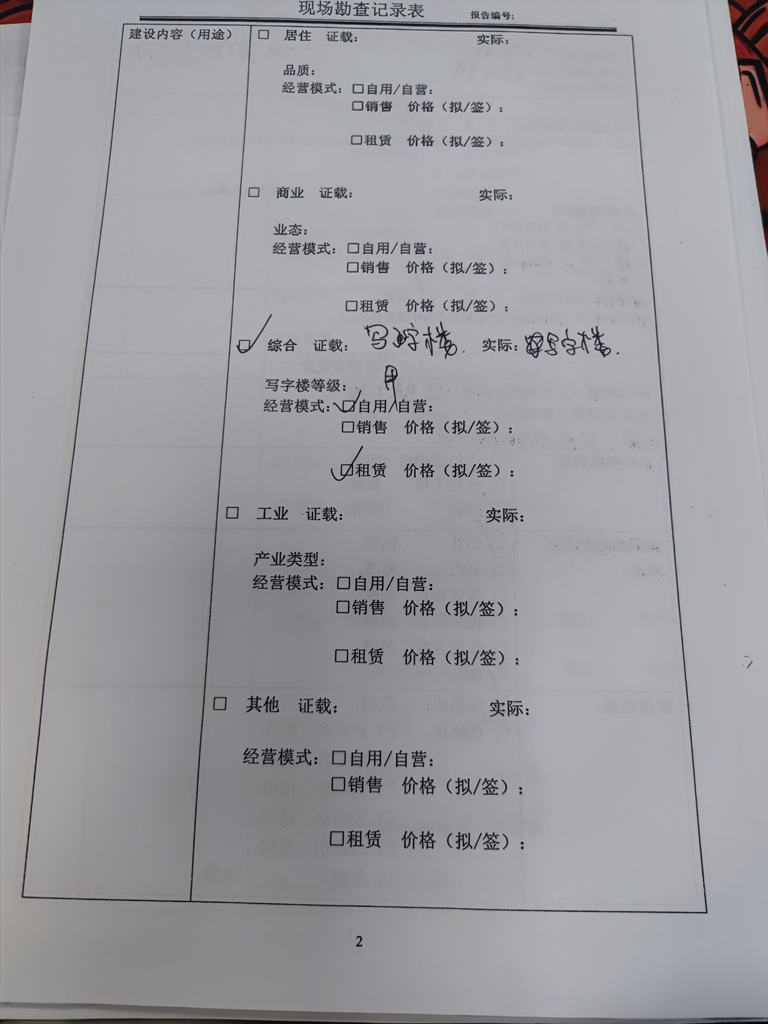 现场勘查记录表 报告编号:
建设内容（用途） □ 居住 证载: 实际:
品质:
经营模式: □自用/自营:
□销售 价格（拟/签）:
□租赁 价格（拟/签）:
□ 商业 证载: 实际:
业态:
经营模式: □自用/自营:
□销售 价格（拟/签）:
□租赁 价格（拟/签）:
☑ 综合 证载: 写字楼. 实际: 写字楼.
写字楼等级: 甲
经营模式: ☑自用/自营:
□销售 价格（拟/签）:
☑租赁 价格（拟/签）:
□ 工业 证载: 实际:
产业类型:
经营模式: □自用/自营:
□销售 价格（拟/签）:
□租赁 价格（拟/签）:
□ 其他 证载: 实际:
经营模式: □自用/自营:
□销售 价格（拟/签）:
□租赁 价格（拟/签）:
2